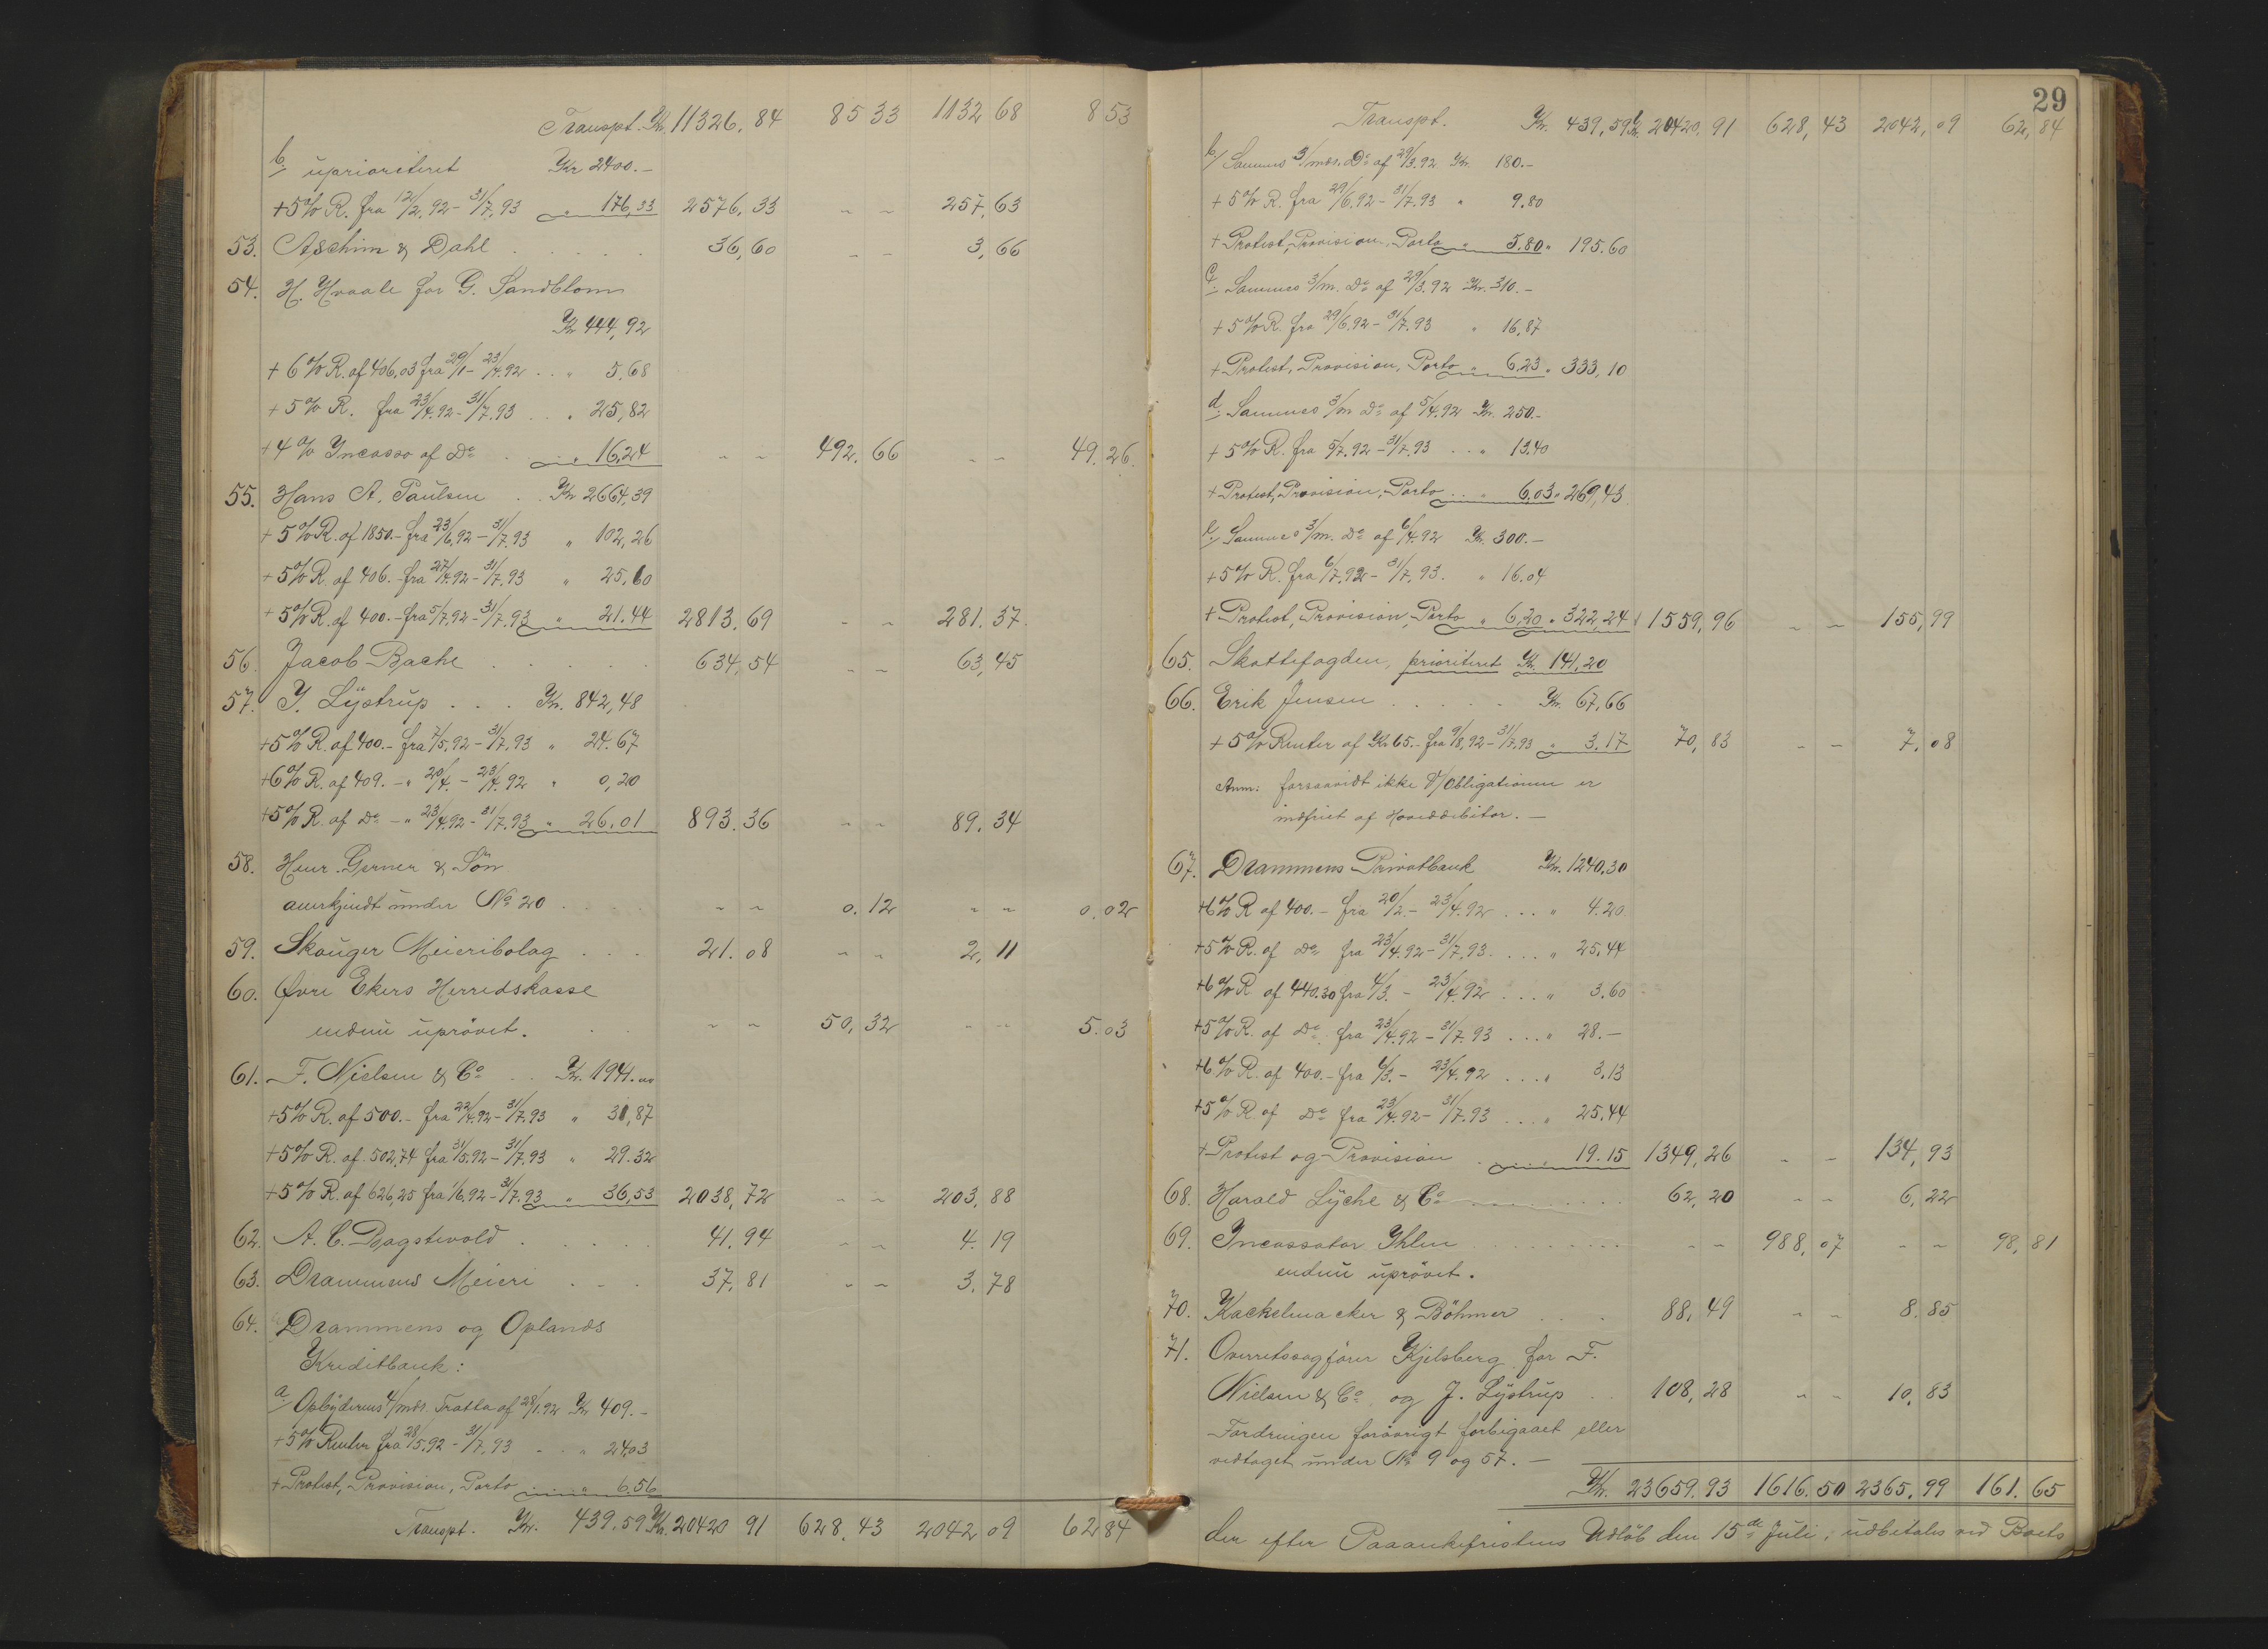 Transpt. Kr. 11326.84 85 33 1132 68 8 53
b/ uprioriteret Kr 2400.–
+5% R. fra 12/2.92–31/7.93 „ 176,33 2576.33 – – 257,63
53. Aschim & Dahl . . . . . 36,60 – – 3,66
54. H. Hvaale for G. Sandblom
Kr 444,92
+ 6% R. af 406,03 fra 29/1–23/4.92 . . „ 5,68
+ 5% R. fra 23/4.92–31/7.93 . . „ 25,82
+ 4% Incasso af Do . . „ 16,24 – – 492.66 – – 49.26.
55. Hans A. Paulsen . . Kr 2664,39
+ 5% R. af 1850.– fra 23/6.92–31/7.93 „ 102,26
+ 5% R. af 406.– fra 27/4.92–31/7.93 „ 25,60
+ 5% R. af 400.– fra 5/7.92–31/7.93 „ 21.44 2813.69 – – 281.37.
56. Jacob Bache . . . . . 634,54 – – 63,45
57. J. Lystrup . . . Kr. 842,48
+5% R. af 400.– fra 7/5.92–31/7.93 „ 24.67
+6% R. af 409.– „ 20/4.–23/4.92 „ 0,20
+5% R. af Do – „ 23/4.92–31/7.93 „ 26,01 893.36 – – 89.34
58. Henr. Gerner & Søn
anerkjendt under No 20 . . . . – – 0.12 – – 0.02
59. Skauger Meieribolag . . . 21.08 – – 2,11
60. Øvre Ekers Herredskasse
endnu uprøvet. . . – – 50,32 – – 5.03
61. F. Nielsen & Co . . Kr. 1941.00
+5% R. af 500.– fra 22/4.92–31/7.93 „ 31,87
+5% R. af 502,74 fra 31/5.92–31/7.93 „ 29.32
+5% R. af 626,25 fra 1/6.92–31/7.93 „ 36,53 2038,72 – – 203.88
62. A. C. Bagstevold . . . . . 41.94 – – 4.19
63. Drammens Meieri . . . 37.81 – – 3.78
64. Drammens og Oplands
Kreditbank:
a/ Opbyderens 4/mdr. Tratta af 28/1.92 Kr 409.–
+5% Renter fra 28/5.92–31/7.93 – . . „ 24.03
+ Protest, Provision, Porto . . . . „ 6.56
Transpt. Kr. 439.59 Kr. 20420 91 628.43 2042 09 62 84
29
Transpt. Kr. 439,59 Kr. 20420,91 628,43 2042,09 62,84
b/ Sammes 3/mdr. Do af 29/3.92 Kr. 180.–
+ 5% R. fra 29/6.92–31/7.93 „ 9.80
+ Protest, Provision, Porto „ 5.80 „ 195.60
c/ Sammes 3/m. Do af 29/3.92 Kr. 310.–
+ 5% R. fra 29/6.92–31/7.93 „ 16,87
+ Protest, Provision, Porto „ 6,23 „ 333,10
d/ Sammes 3/m Do af 5/4.92 Kr. 250.–
+ 5% R. fra 5/7.92–31/7.93 . . „ 13.40
+ Protest, Provision, Porto . . „ 6,03 „ 269,43
e/ Sammes 3/m. Do af 6/4.92 Kr. 300.–
+ 5% R. fra 6/7.92–31/7.93. „ 16.04
+ Protest, Provision, Porto „ 6,20 „ 322,24 1559,96 – – 155,99
65. Skattefogden, prioriteret Kr. 141,20
66. Erik Jensen . . . . . Kr. 67,66
+ 5% Renter af Kr. 65.– fra 9/8.92–31/7.93 „ 3.17 70,83 – – 7.08
Anm: forsaavidt ikke V/Obligationen er
indfriet af Hoveddebitor. –
67. Drammens Privatbank Kr. 1240.30
+6% R. af 400.– fra 20/2.–23/4.92 . . . „ 4.20
+5% R. af Do fra 23/4.92–31/7.93. . . . „ 25,44
+6% R. af 440.30 fra 4/3.–23/4.92 . . . „ 3.60
+5% R. af Do fra 23/4.92–31/7.93 . . . „ 28.–
+6% R. af 400.– fra 6/3.–23/4.92 . . . „ 3.13
+5% R. af Do fra 23/4.92–31/7.93 . . . „ 25.44
+ Protest og Provision . . . . „ 19.15 1349,26 – – 134,93
68. Harald Lyche & Co . . . . . . . 62,20 – – 6,22
69. Incassator Ihlen . . . . . . . – – 988,07 – – 98,81
endnu uprøvet.
70. Kackelmacker & Böhmer . . . 88,49 – – 8.85
71. Overretssagfører Kjelsberg for F.
Nielsen & Co og J. Lystrup . . 108,28 – – 10,83
Fordringen forøvrigt forbigaaet eller
vedtaget under No 9 og 57. –
Kr. 23659.93 1616.50 2365.99 161.65
der efter Paaankefristens Udløb den 15de Juli, udbetales ved Boets